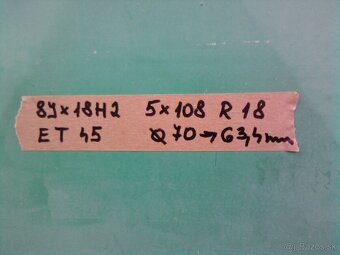 8J×18H2 5×108 R 18
ET 45 Ø70→63,4mm
@j Bazos.sk